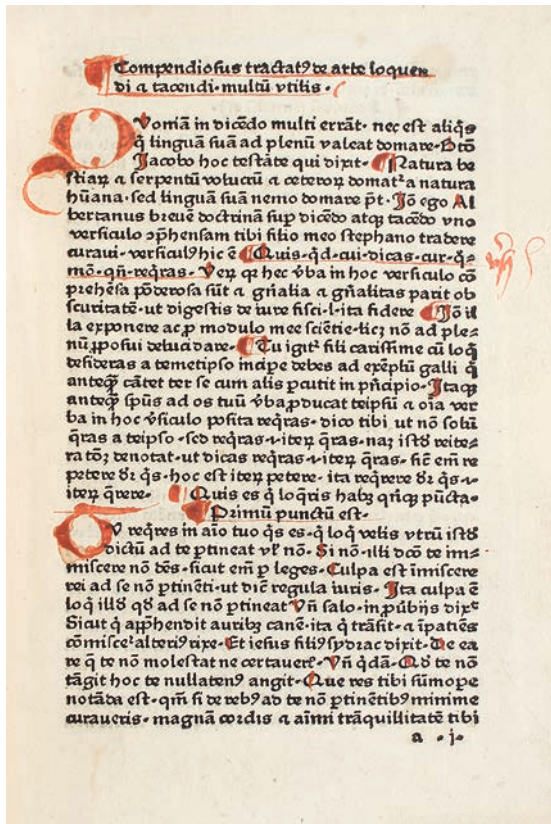 Compendiosus tractatꝰ de arte loquen
di ⁊ tacendi·multū vtilis·
QVoniā in dicēdo multi errāt·nec est aliq̄s
q̄ linguā suā ad plenū valeat domare·Btō
Jacobo hoc testāte qui dixit·Natura be
stiaꝝ ⁊ serpentū volucrū ⁊ ceteroꝝ domat᷑ a natura
hūana·sed linguā suā nemo domare pōt·Jō ego Al
bertanus breuē doctrinā suꝑ dicēdo atqꝫ tacēdo vno
versiculo ꝯprehensam tibi filio meo stephano tradere
curaui·versiculꝰ hic ē Quis·qd·cui·dicas·cur·q̄⸗
mō·qn̄·reqras·Veꝝ qꝛ hec v̄ba in hoc versiculo cō
prehēsa pōderosa sūt ⁊ gn̄alia ⁊ gn̄alitas parit ob
scuritatē·ut digestis de iure fisci·l·ita fidere Jō il
la exponere ac ꝓ modulo mee sciētie·licꝫ nō ad ple⸗
nū ꝓposui delucidare·Tu igit᷑ fili carissime cū loq̄
desideras a temetipso incipe debes ad exēplū galli q̄
anteq̄ꝫ cātet ter se cum alis ꝑcutit in pn̄cipio·Itaqꝫ
anteq̄ꝫ spūs ad os tuū v̄ba ꝓducat teipsū ⁊ oīa ver
ba in hoc v̄siculo posita reqras·dico tibi ut nō solū
q̄ras a teipso·sed reqras·⁊ iteꝝ q̄ras·naꝫ istð reite⸗
ratōꝫ denotat·ut dicas reqras·⁊ iteꝝ q̄ras·sic em̄ re
petere dr̄ q̄s·hoc est iteꝝ petere·ita reqrere dr̄ q̄s·⁊
iteꝝ q̄rere· Quis es q̄ loqris habꝫ qn̄qꝫ pūcta·
Primū punctū est·
QV reqres in aīo tuo q̄s es·q̄ loq̄ velis vtrū istð
dictū ad te ꝑtineat vꝉ nō·Si nō·illi dcō te im⸗
miscere nō dēs·sicut em̄ ꝑ leges·Culpa est īmiscere
rei ad se nō ꝑtinēti·ut diē regula iuris·Ita culpa ē
loq̄ illð qð ad se nō ꝑtineat Vn̄ salo·in ꝓūbijs dixᵉ
Sicut q̄ apphendit auribꝫ canē·ita q̄ trāsit·⁊ īpatiēs
cōmisce᷑ alteriꝰ rixe·Et iesus filiꝰ sydrac dixit·De ea
re q̄ te nō molestat ne certauerꝭ·Vn̄ q̄dā·Qð te nō
tāgit hoc te nullatenꝰ angit·Que res tibi sūmope
notāda est·qm̄ si de rebꝰ ad te nō ꝑtinētibꝰ minime
curaueris·magnā cordis ⁊ aīmi trāquillitatē tibi
a ·j·